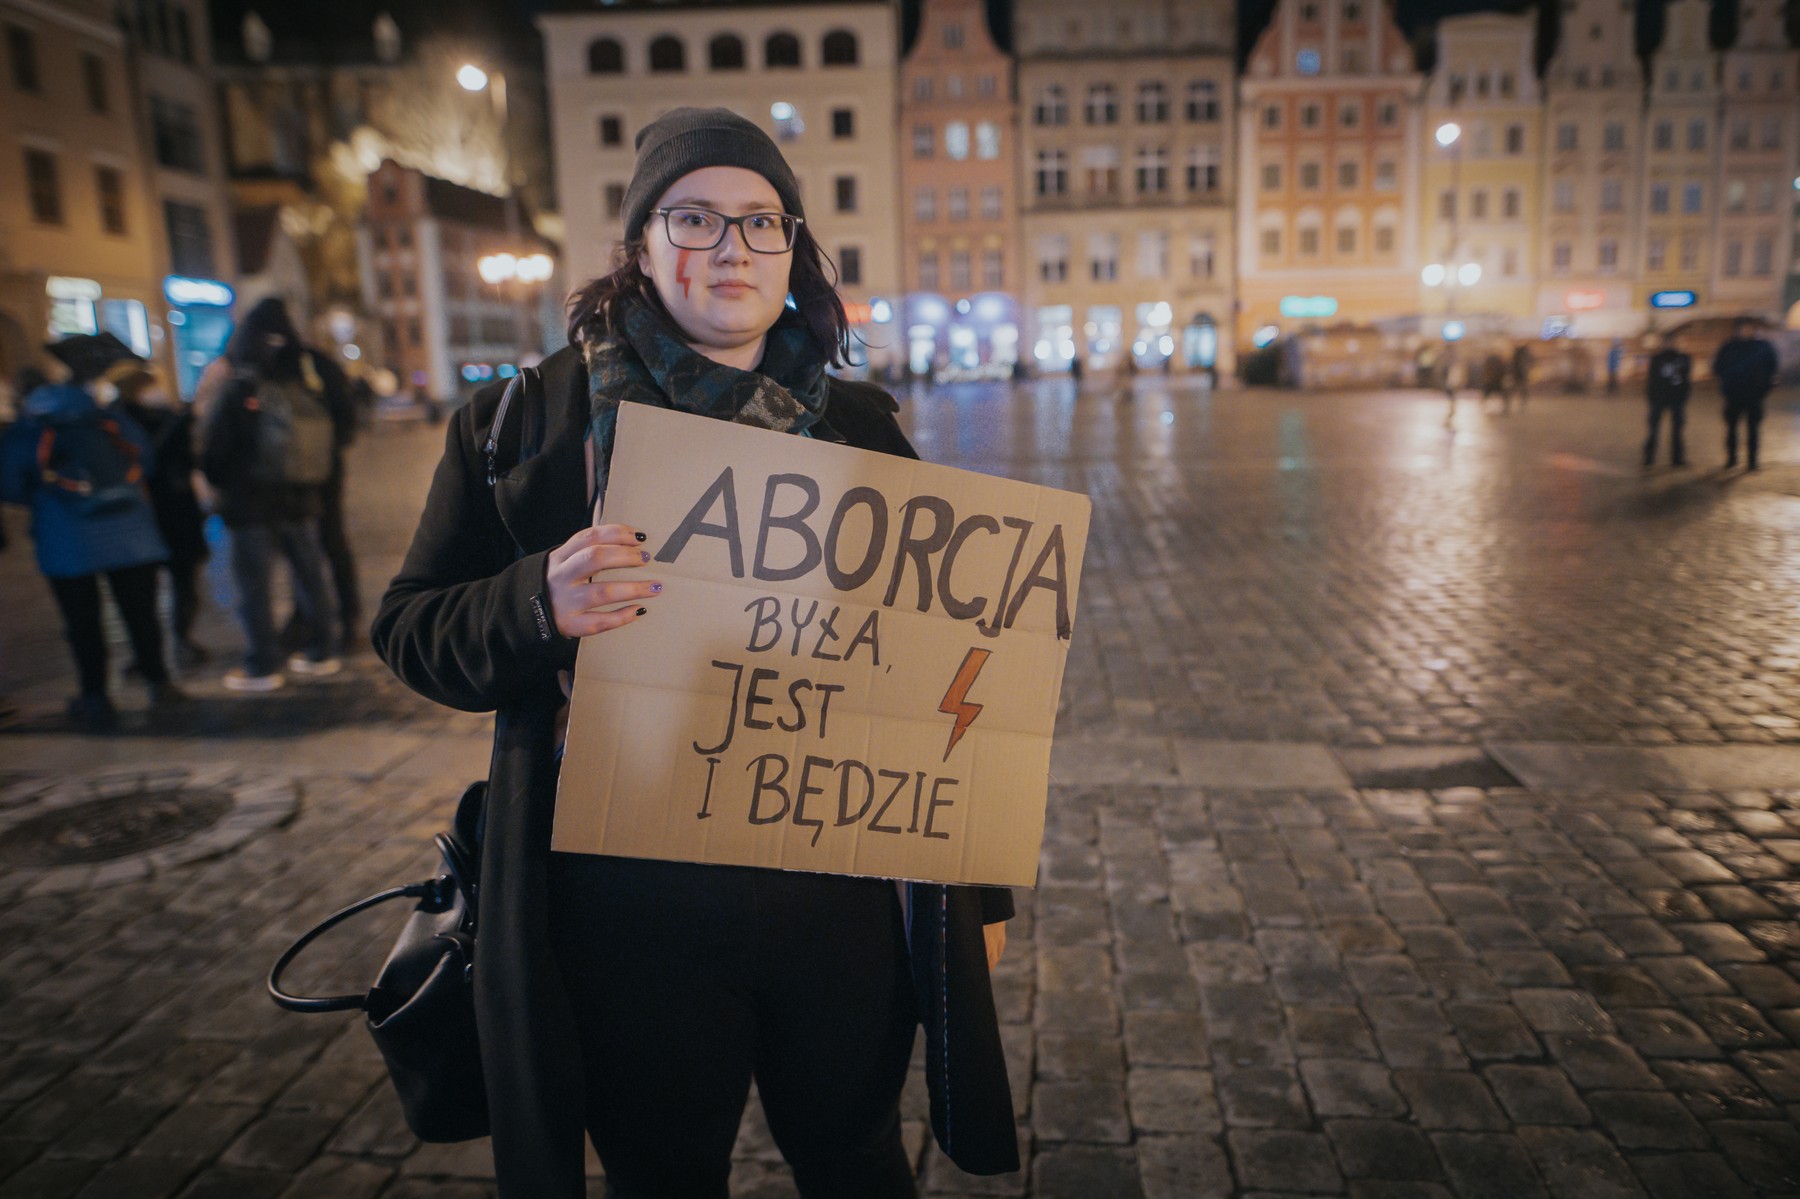 ABORCJA
BYŁA,
JEST
I BĘDZIE